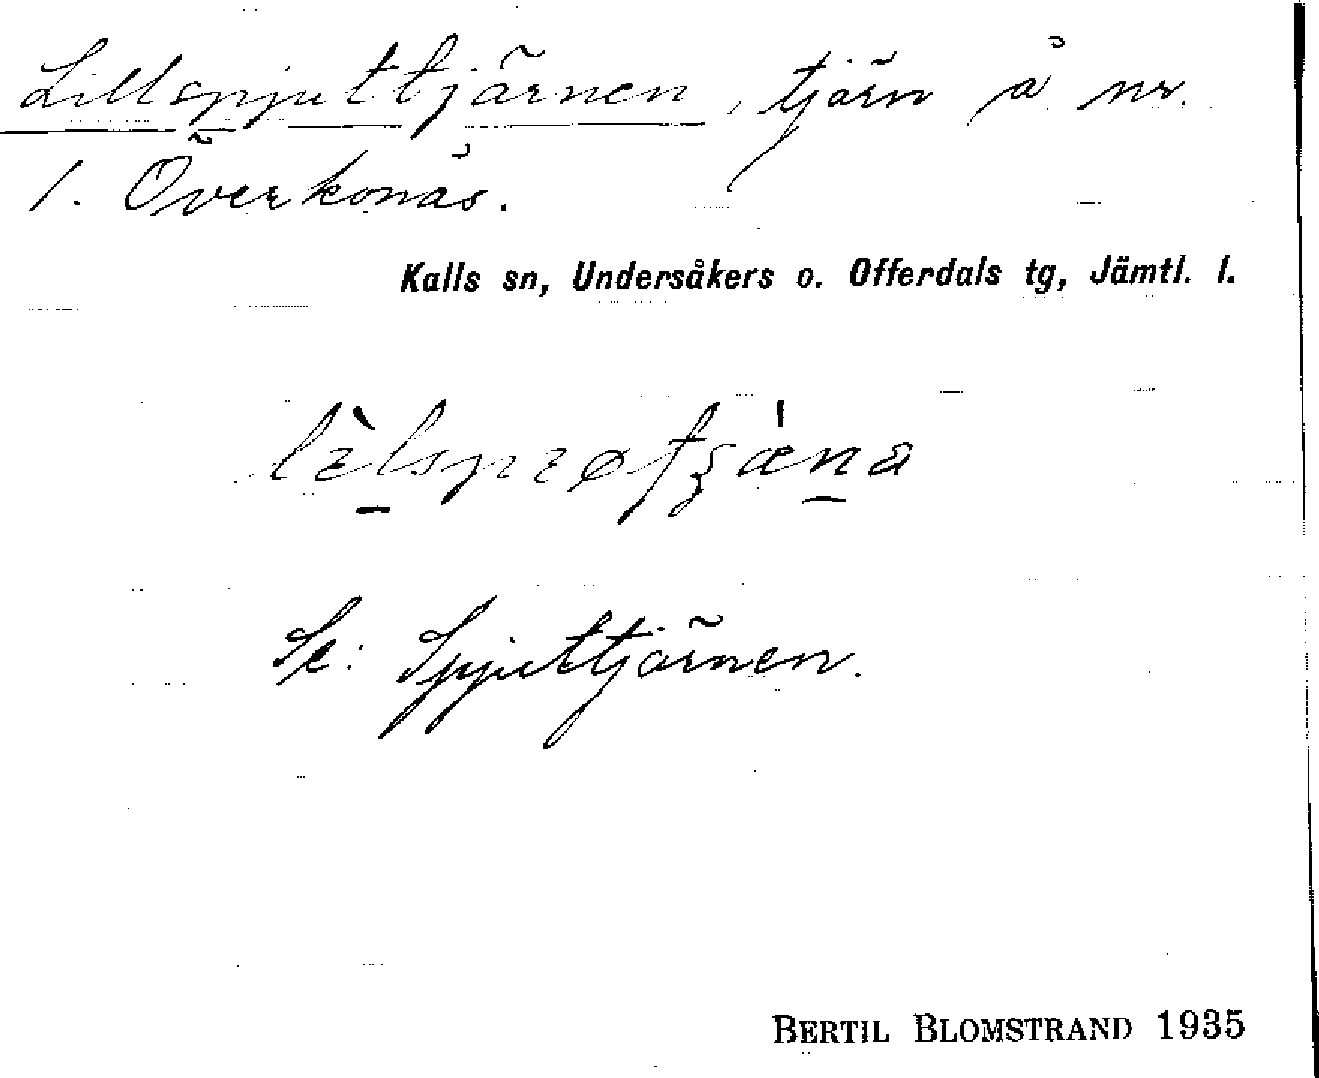 Lillspjuttjärnen, tjärn å nr.
1. Överkonås.
Kalls sn, Undersåkers o. Offerdals tg, Jämtl. l.
Se: Spjuttjärnen.
BERTIL BLOMSTRAND 1935